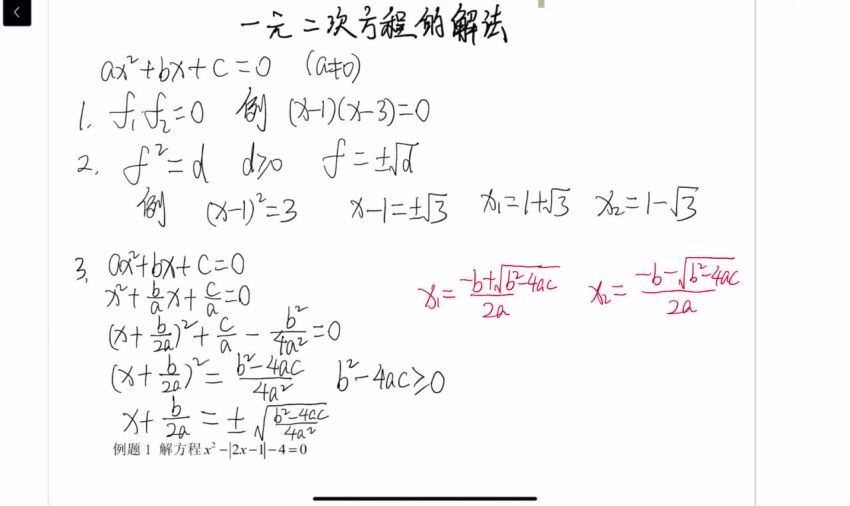 一元二次方程的解法
ax²+bx+c=0 (a≠0)
1. f₁·f₂=0 例 (x-1)(x-3)=0
2. f²=d d≥0 f=±√d
例 (x-1)²=3 x-1=±√3 x₁=1+√3 x₂=1-√3
3. ax²+bx+c=0
x²+b/a x+c/a=0
(x+b/2a)²+c/a-b²/4a²=0
(x+b/2a)²=(b²-4ac)/4a² b²-4ac≥0
x+b/2a=±√((b²-4ac)/4a²)
x₁=(-b+√(b²-4ac))/2a x₂=(-b-√(b²-4ac))/2a
例题 1 解方程 x²-|2x-1|-4=0